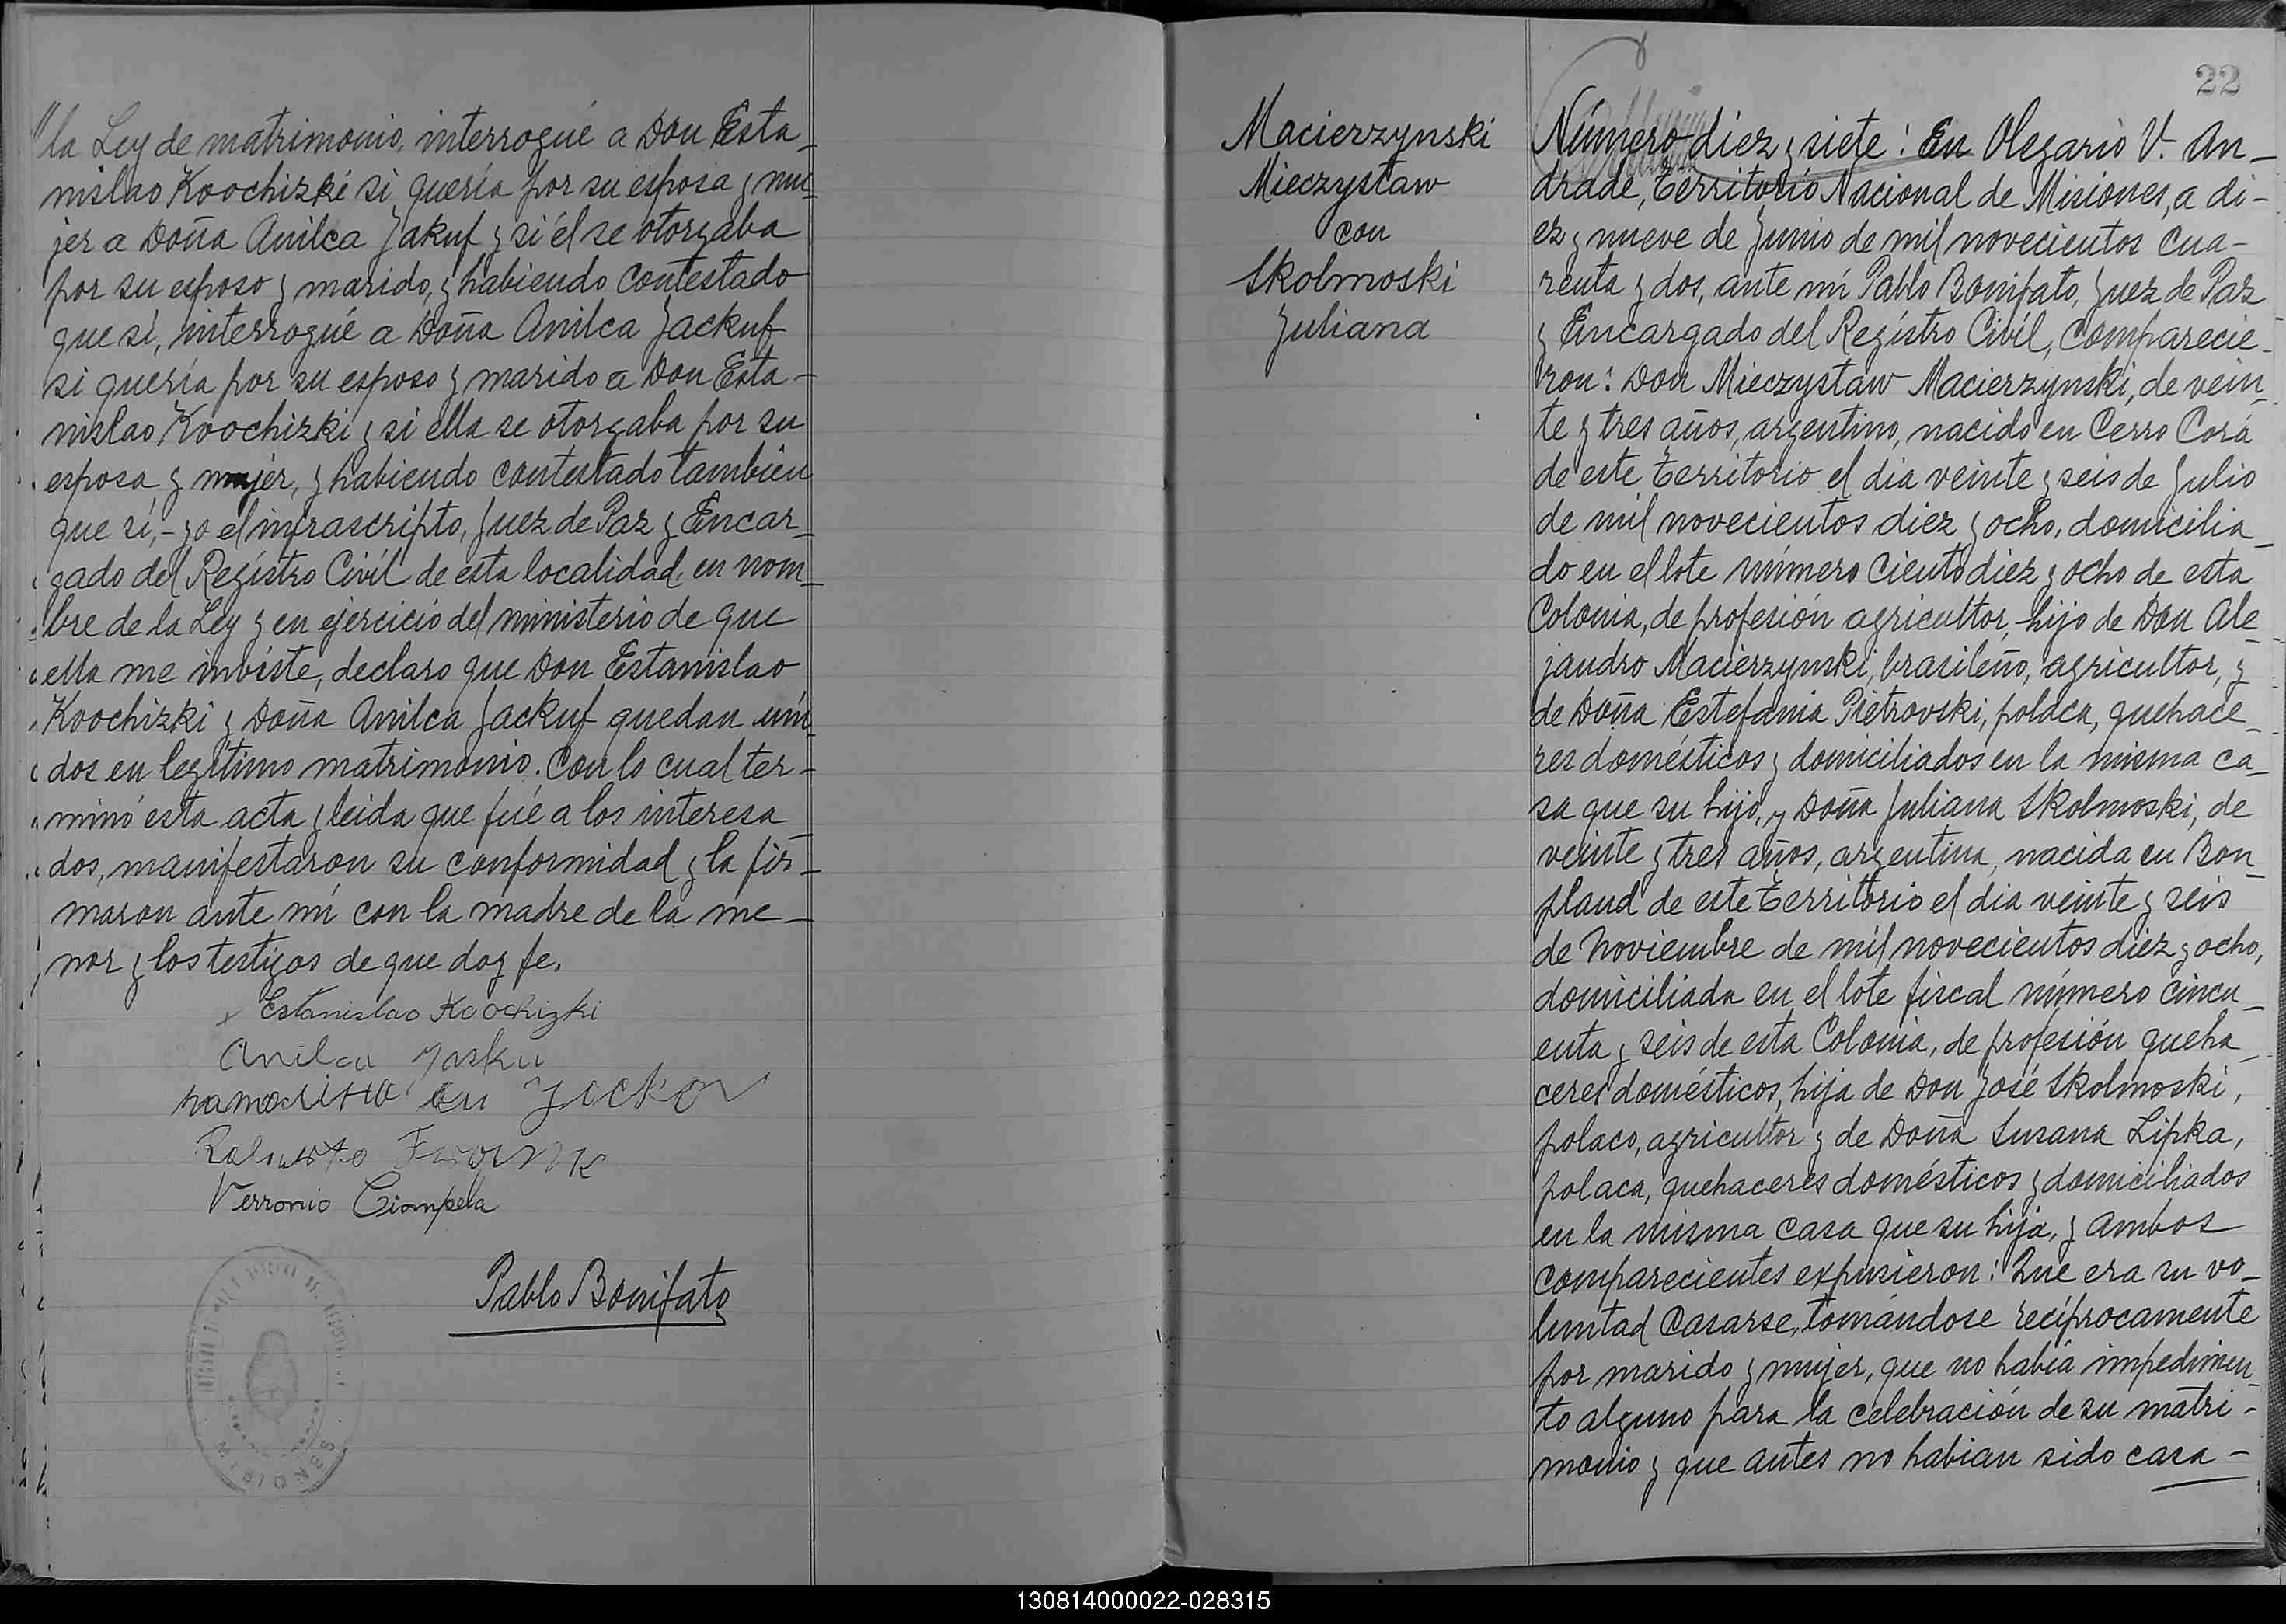 la Ley de matrimonio, interrogué a Don Esta-
nislao Koochizki si quería por su esposa y mu-
jer a Doña Anilca Jakuf y si él se otorgaba
por su esposo y marido, y habiendo contestado
que sí, interrogué a Doña Anilca Jackuf
si quería por su esposo y marido a Don Esta-
nislao Koochizki y si ella se otorgaba por su
esposa y mujer, y habiendo contestado también
que sí,- yo el infrascripto, Juez de Paz y Encar-
gado del Regístro Civíl de esta localidad, en nom-
bre de la Ley y en ejercicio del ministerio de que
ella me inviste, declaro que Don Estanislao
Koochizki y Doña Anilca Jackuf quedan uni-
dos en legítimo matrimonio. Con lo cual ter-
minó esta acta y leida que fué a los interesa-
dos, manifestaron su conformidad y la fir-
maron ante mí con la madre de la me-
nor y los testigos de que doy fe.
Estanislao Koochizki
Anilca Jasku
Roberto
Verronio Ciompela
Pablo Bonifato
MISIONES
22
Macierzynski
Mieczystaw
con
Skolmoski
Juliana
Número diez y siete: En Olegario V. An-
drade, Territorio Nacional de Misiones, a di-
ez y nueve de Junio de mil novecientos cua-
renta y dos, ante mí Pablo Bonifato, Juez de Paz
y Encargado del Regístro Civíl, comparecie-
ron: Don Mieczystaw Macierzynski, de vein-
te y tres años, argentino, nacido en Cerro Corá
de este territorio el dia veinte y seis de Julio
de mil novecientos diez y ocho, domicilia-
do en el lote número ciento diez y ocho de esta
Colonia, de profesión agricultor, hijo de Don Ale-
jandro Macierzynski, brasileño, agricultor, y
de Doña Estefania Pietrovski, polaca, quehace-
res domésticos y domiciliados en la misma ca-
sa que su hijo, y Doña Juliana Skolmoski, de
veinte y tres años, argentina, nacida en Bon-
pland de este territorio el dia veinte y seis
de Noviembre de mil novecientos diez y ocho,
domiciliada en el lote fiscal número cincu-
enta y seis de esta Colonia, de profesión queha-
ceres domésticos, hija de Don José Skolmoski,
polaco, agricultor y de Doña Susana Lipka,
polaca, quehaceres domésticos y domiciliados
en la misma casa que su hija, y ambos
comparecientes expusieron: Que era su vo-
luntad casarse, tomándose recíprocamente
por marido y mujer, que no había impedimen-
to alguno para la celebración de su matri-
monio y que antes no habian sido casa-
130814000022-028315